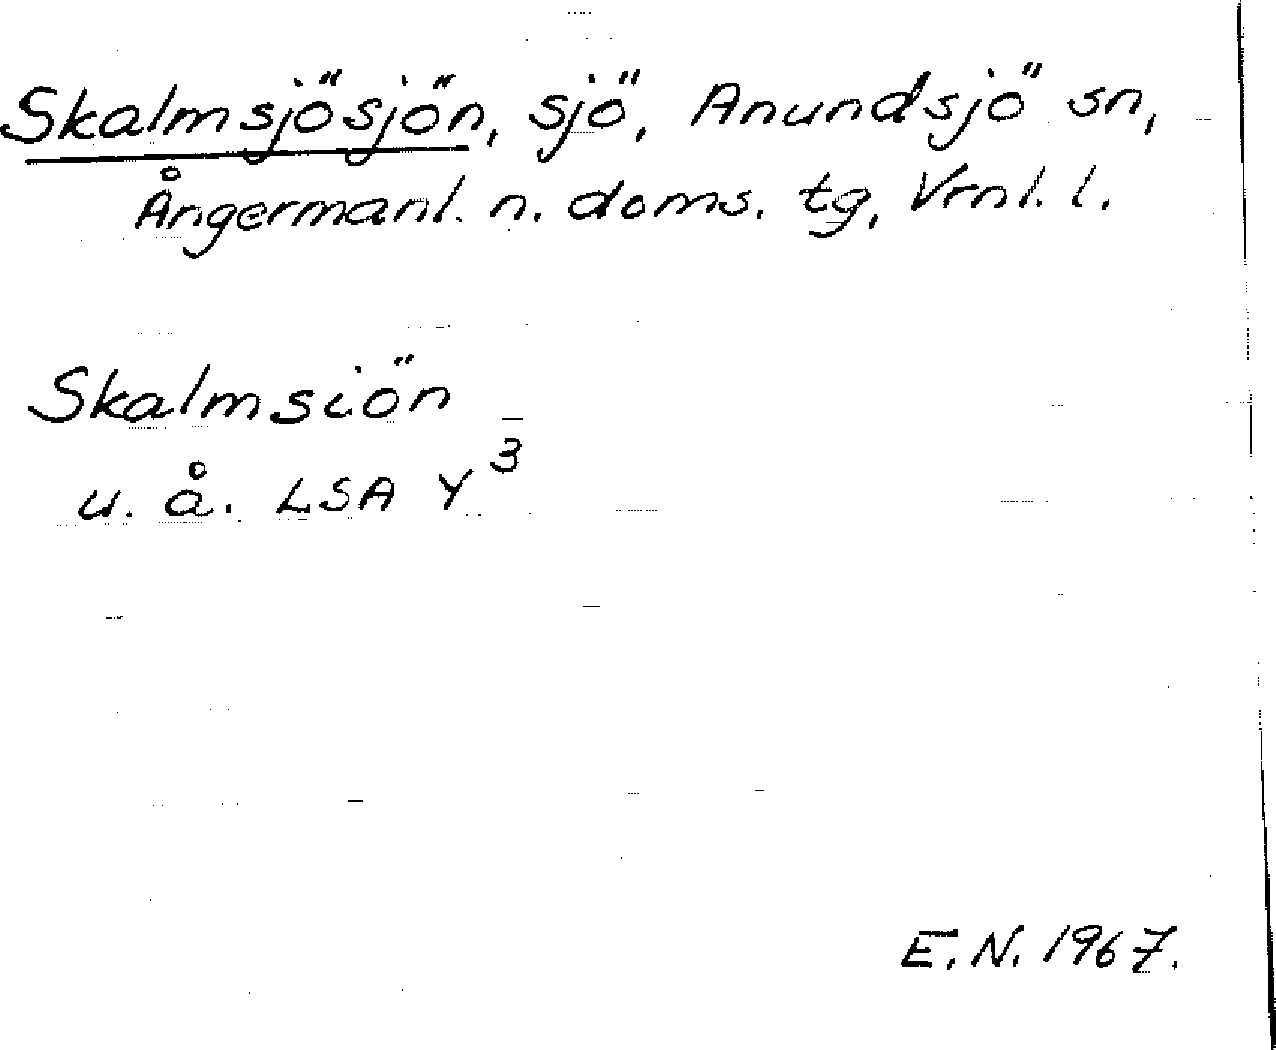 Skalmsjösjön, sjö, Anundsjö sn,
Ångermanl. n. doms. tg, Vrnl. l.
Skalmsiön
u. å. LSA Y³
E. N. 1967.